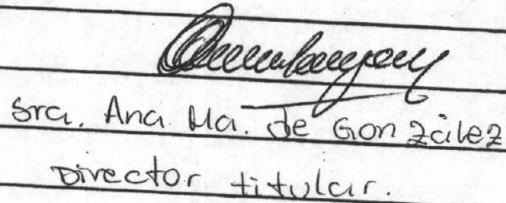 Sra. Ana Ma. de González
Director titular.